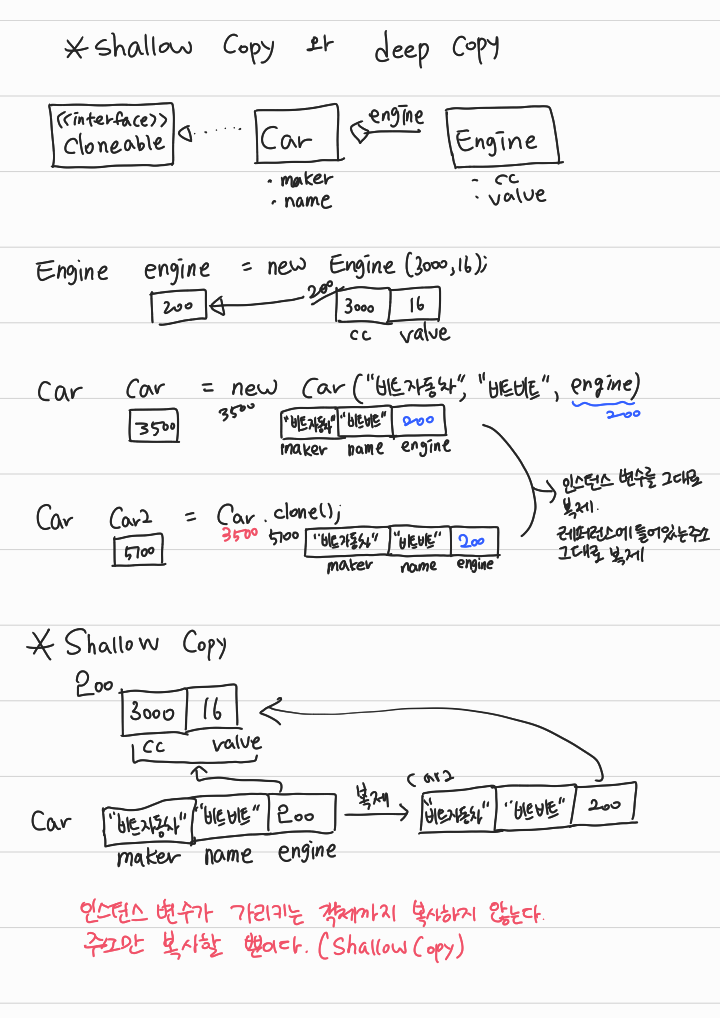 * shallow Copy 와 deep Copy
<<interface>>
Cloneable
Car
engine
Engine
· maker
· name
- cc
· value
Engine engine = new Engine (3000,16);
200
200
3000
16
cc
value
Car Car = new Car ("비트자동차", "비트비트", engine)
3500
3500
"비트자동차"
"비트비트"
200
200
maker
name
engine
인스턴스 변수를 그대로
복제.
레퍼런스에 들어있는 주소
그대로 복제
Car Car2 = Car.clone();
5700
3500
5700
"비트자동차"
"비트비트"
200
maker
name
engine
* Shallow Copy
200
3000
16
cc
value
Car
"비트자동차"
"비트비트"
200
maker
name
engine
복제
Car2
"비트자동차"
"비트비트"
200
인스턴스 변수가 가리키는 객체까지 복사하지 않는다.
주소만 복사할 뿐이다. (Shallow Copy)